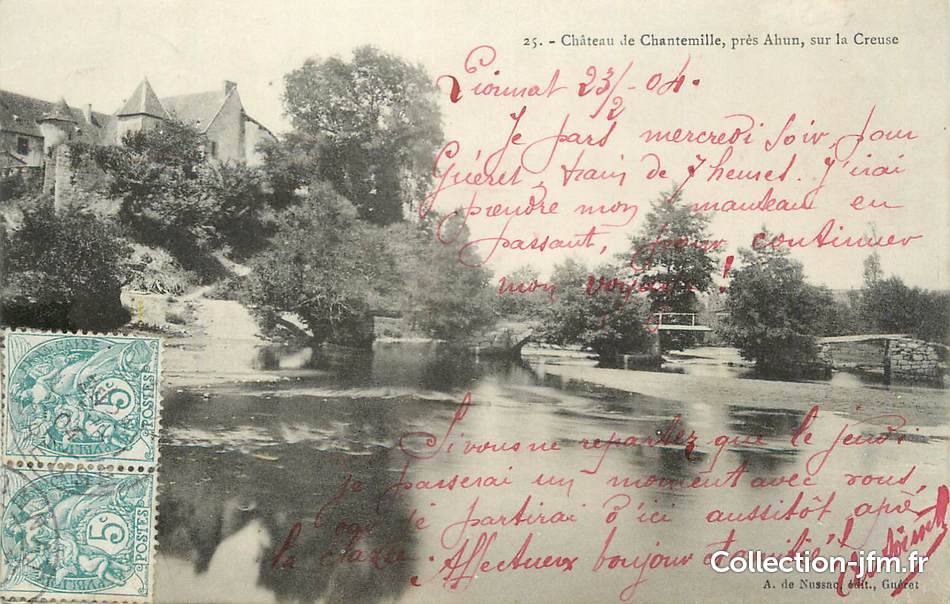 25. - Château de Chantemille, près Ahun, sur la Creuse
Pionnat 23/2 - 04.
Je pars mercredi soir, pour
Guéret, train de 7 heures. J'irai
prendre mon manteau en
passant, pour continuer
mon voyage!
Si vous ne repartez que le jeudi
je passerai un moment avec vous,
je partirai d'ici aussitôt après
la classe. Affectueux bonjour et amitiés
5c
POSTES
5c
POSTES
Collection-jfm.fr
A. de Nussac, édit., Guéret